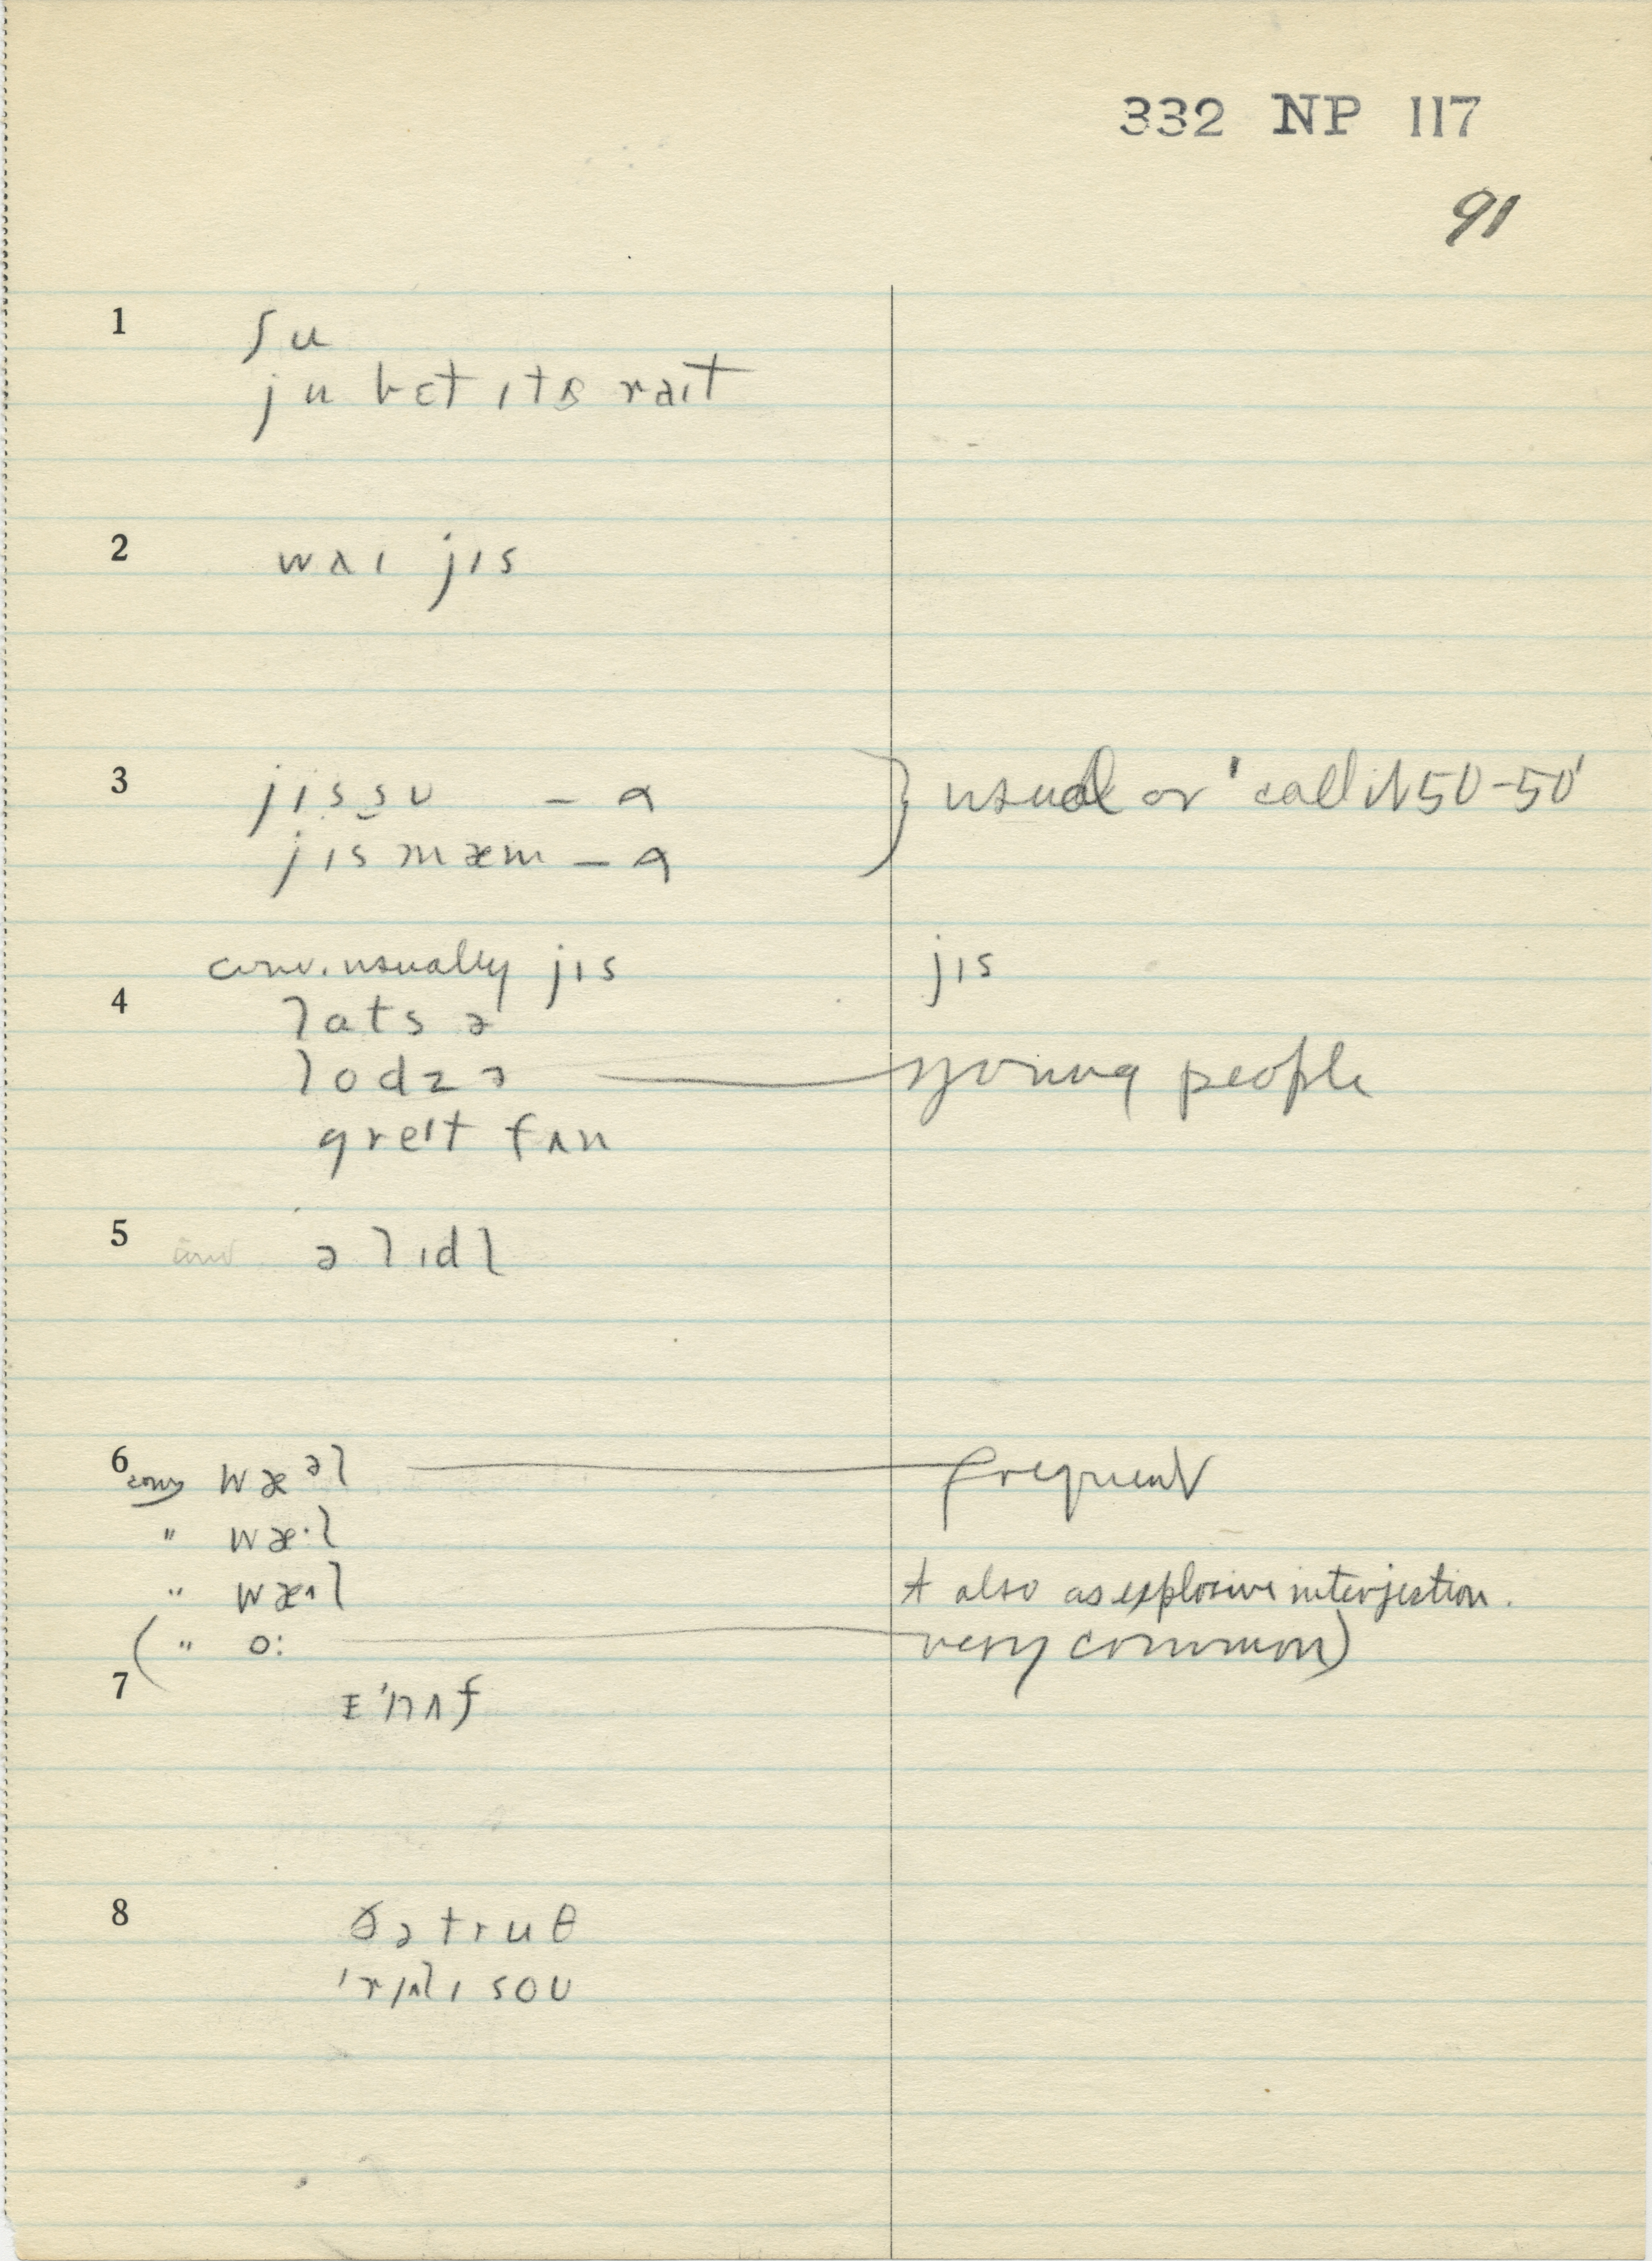 332 NP 117
91
1 ʃu
ju bɛt ɪts raɪt
2 wʌɪ jɪs
3 jɪs sʊ – ɑ } usual or 'call it 50-50'
jɪs mæm – ɑ
conv. usually jɪs jɪs
4 lats ə
lodz ə young people
greɪt fʌn
5 conv ə lɪdl
6 conv wæᵊl frequent
" wæ·l
" wæʌl + also as explosive interjection.
( " o: very common)
7 ɪ'nʌf
8 ðə truθ
'rɪlɪ soʊ